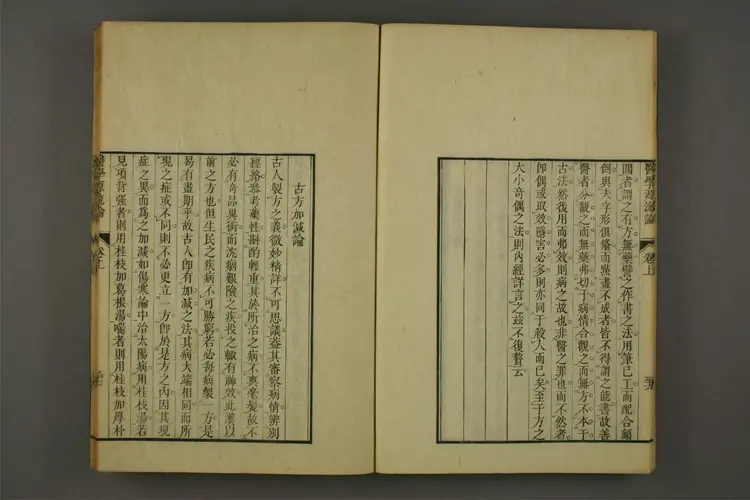 醫學源流論
卷上
開者謂之有方無藥譬之作書之法用筆已工而配合顛
倒與夫字形俱備而點畫不成者皆不得謂之能書故善
醫者分觀之而無藥弗切于病情合觀之而無方不本于
古法然後用而弗效則病之故也非醫之罪也而不然者
即偶或取效隱害必多則亦同于殺人而已矣至于方之
大小奇偶之法則內經詳言之茲不復贅云
古方加減論
古人製方之義微妙精詳不可思議蓋其審察病情辨別
經絡參考藥性斟酌輕重其於所治之病不爽毫髮故不
必有奇品異術而沈痼艱險之疾投之輒有神效此漢以
前之方也但生民之疾病不可勝窮若必每病製一方是
曷有盡期乎故古人即有加減之法其病大端相同而所
現之症或不同則不必更立一方即於是方之內因其現
症之異而為之加減如傷寒論中治太陽病用桂枝湯若
見項背强者則用桂枝加葛根湯喘者則用桂枝加厚朴
醫學源流論
卷上